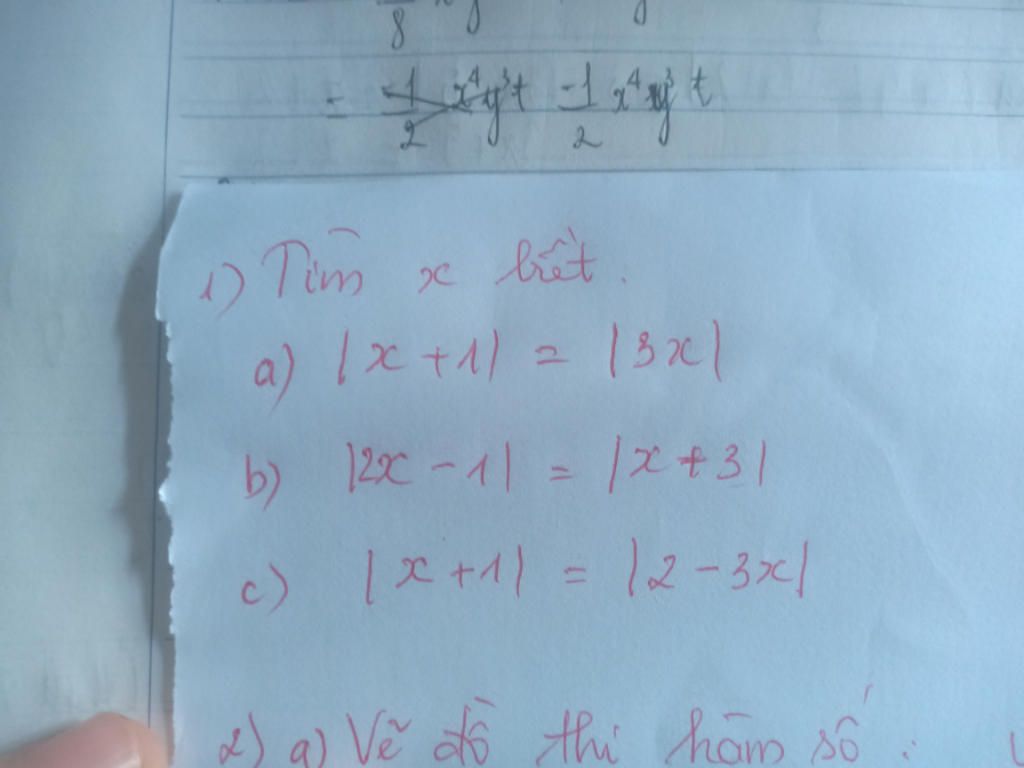 8 y y
= -1/2 x⁴y³t -1/2 x⁴y³t
1) Tìm x biết.
a) |x + 1| = |3x|
b) |2x - 1| = |x + 3|
c) |x + 1| = |2 - 3x|
2) a) Vẽ đồ thi hàm số :